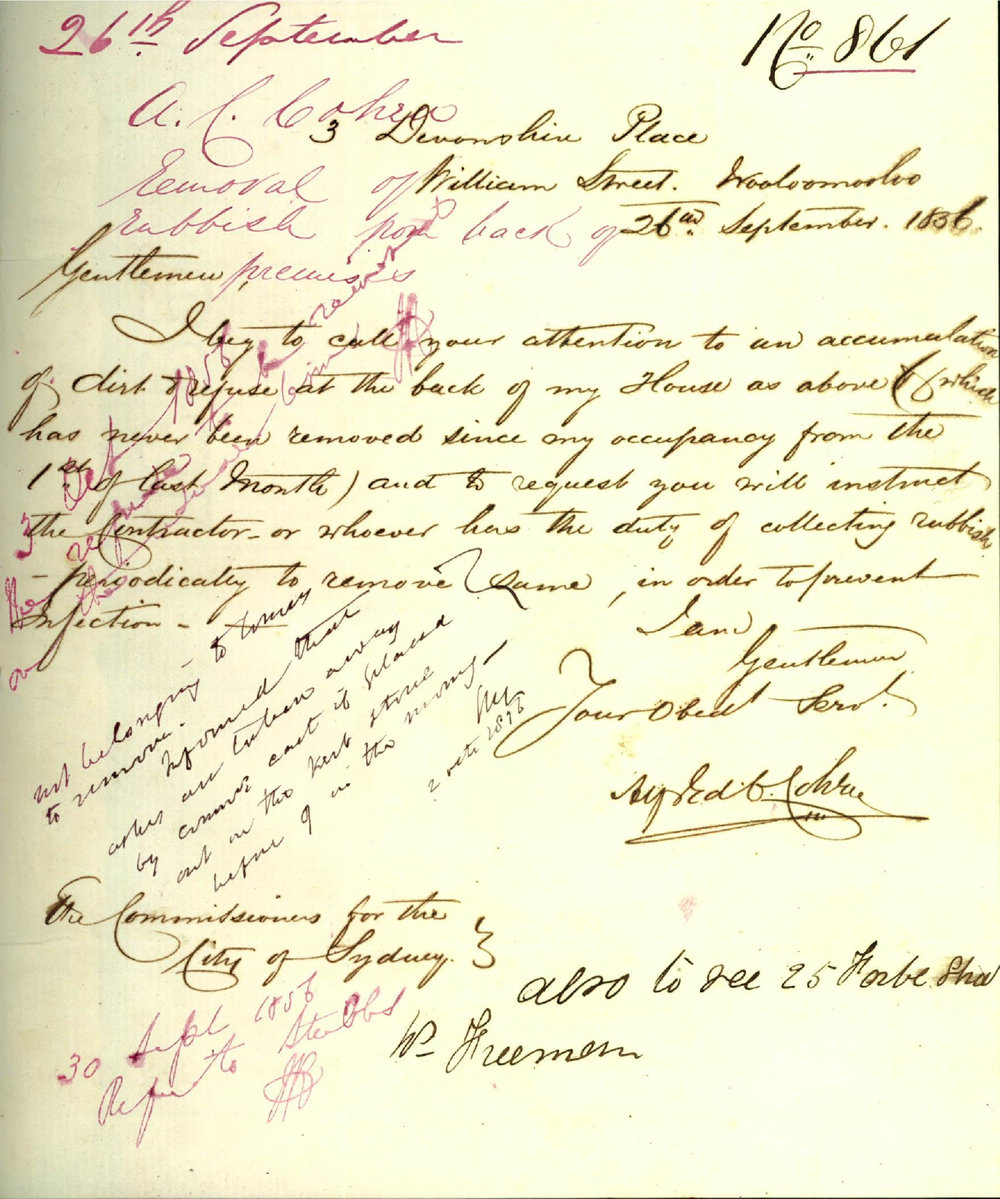 26th September
No 861
A. C. Cohen
3 Devonshire Place
Removal of
William Street. Wooloomooloo
rubbish from back of
26th September. 1856.
Gentlemen,
premises
I beg to call your attention to an accumulation
of dirt & refuse at the back of my House as above (which
has never been removed since my occupancy from the
1st of last Month) and to request you will instruct
the Contractor - or whoever has the duty of collecting rubbish
- periodically to remove same, in order to prevent
Infection -
I am
Gentlemen
Your Obedt Servt.
Alfred C. Cohen
The Commissioners for the
City of Sydney.
3 Oct 1856
The refuse to be removed
on the
not belonging to times
to remove.
informed that
ashes are taken away
by common cart if placed
out on the kerb stone
before 9 in the morning -
2 Octr 1856
30 Sept 1856
Refer to Stubbs
also to see 25 Forbe
Wm Freeman